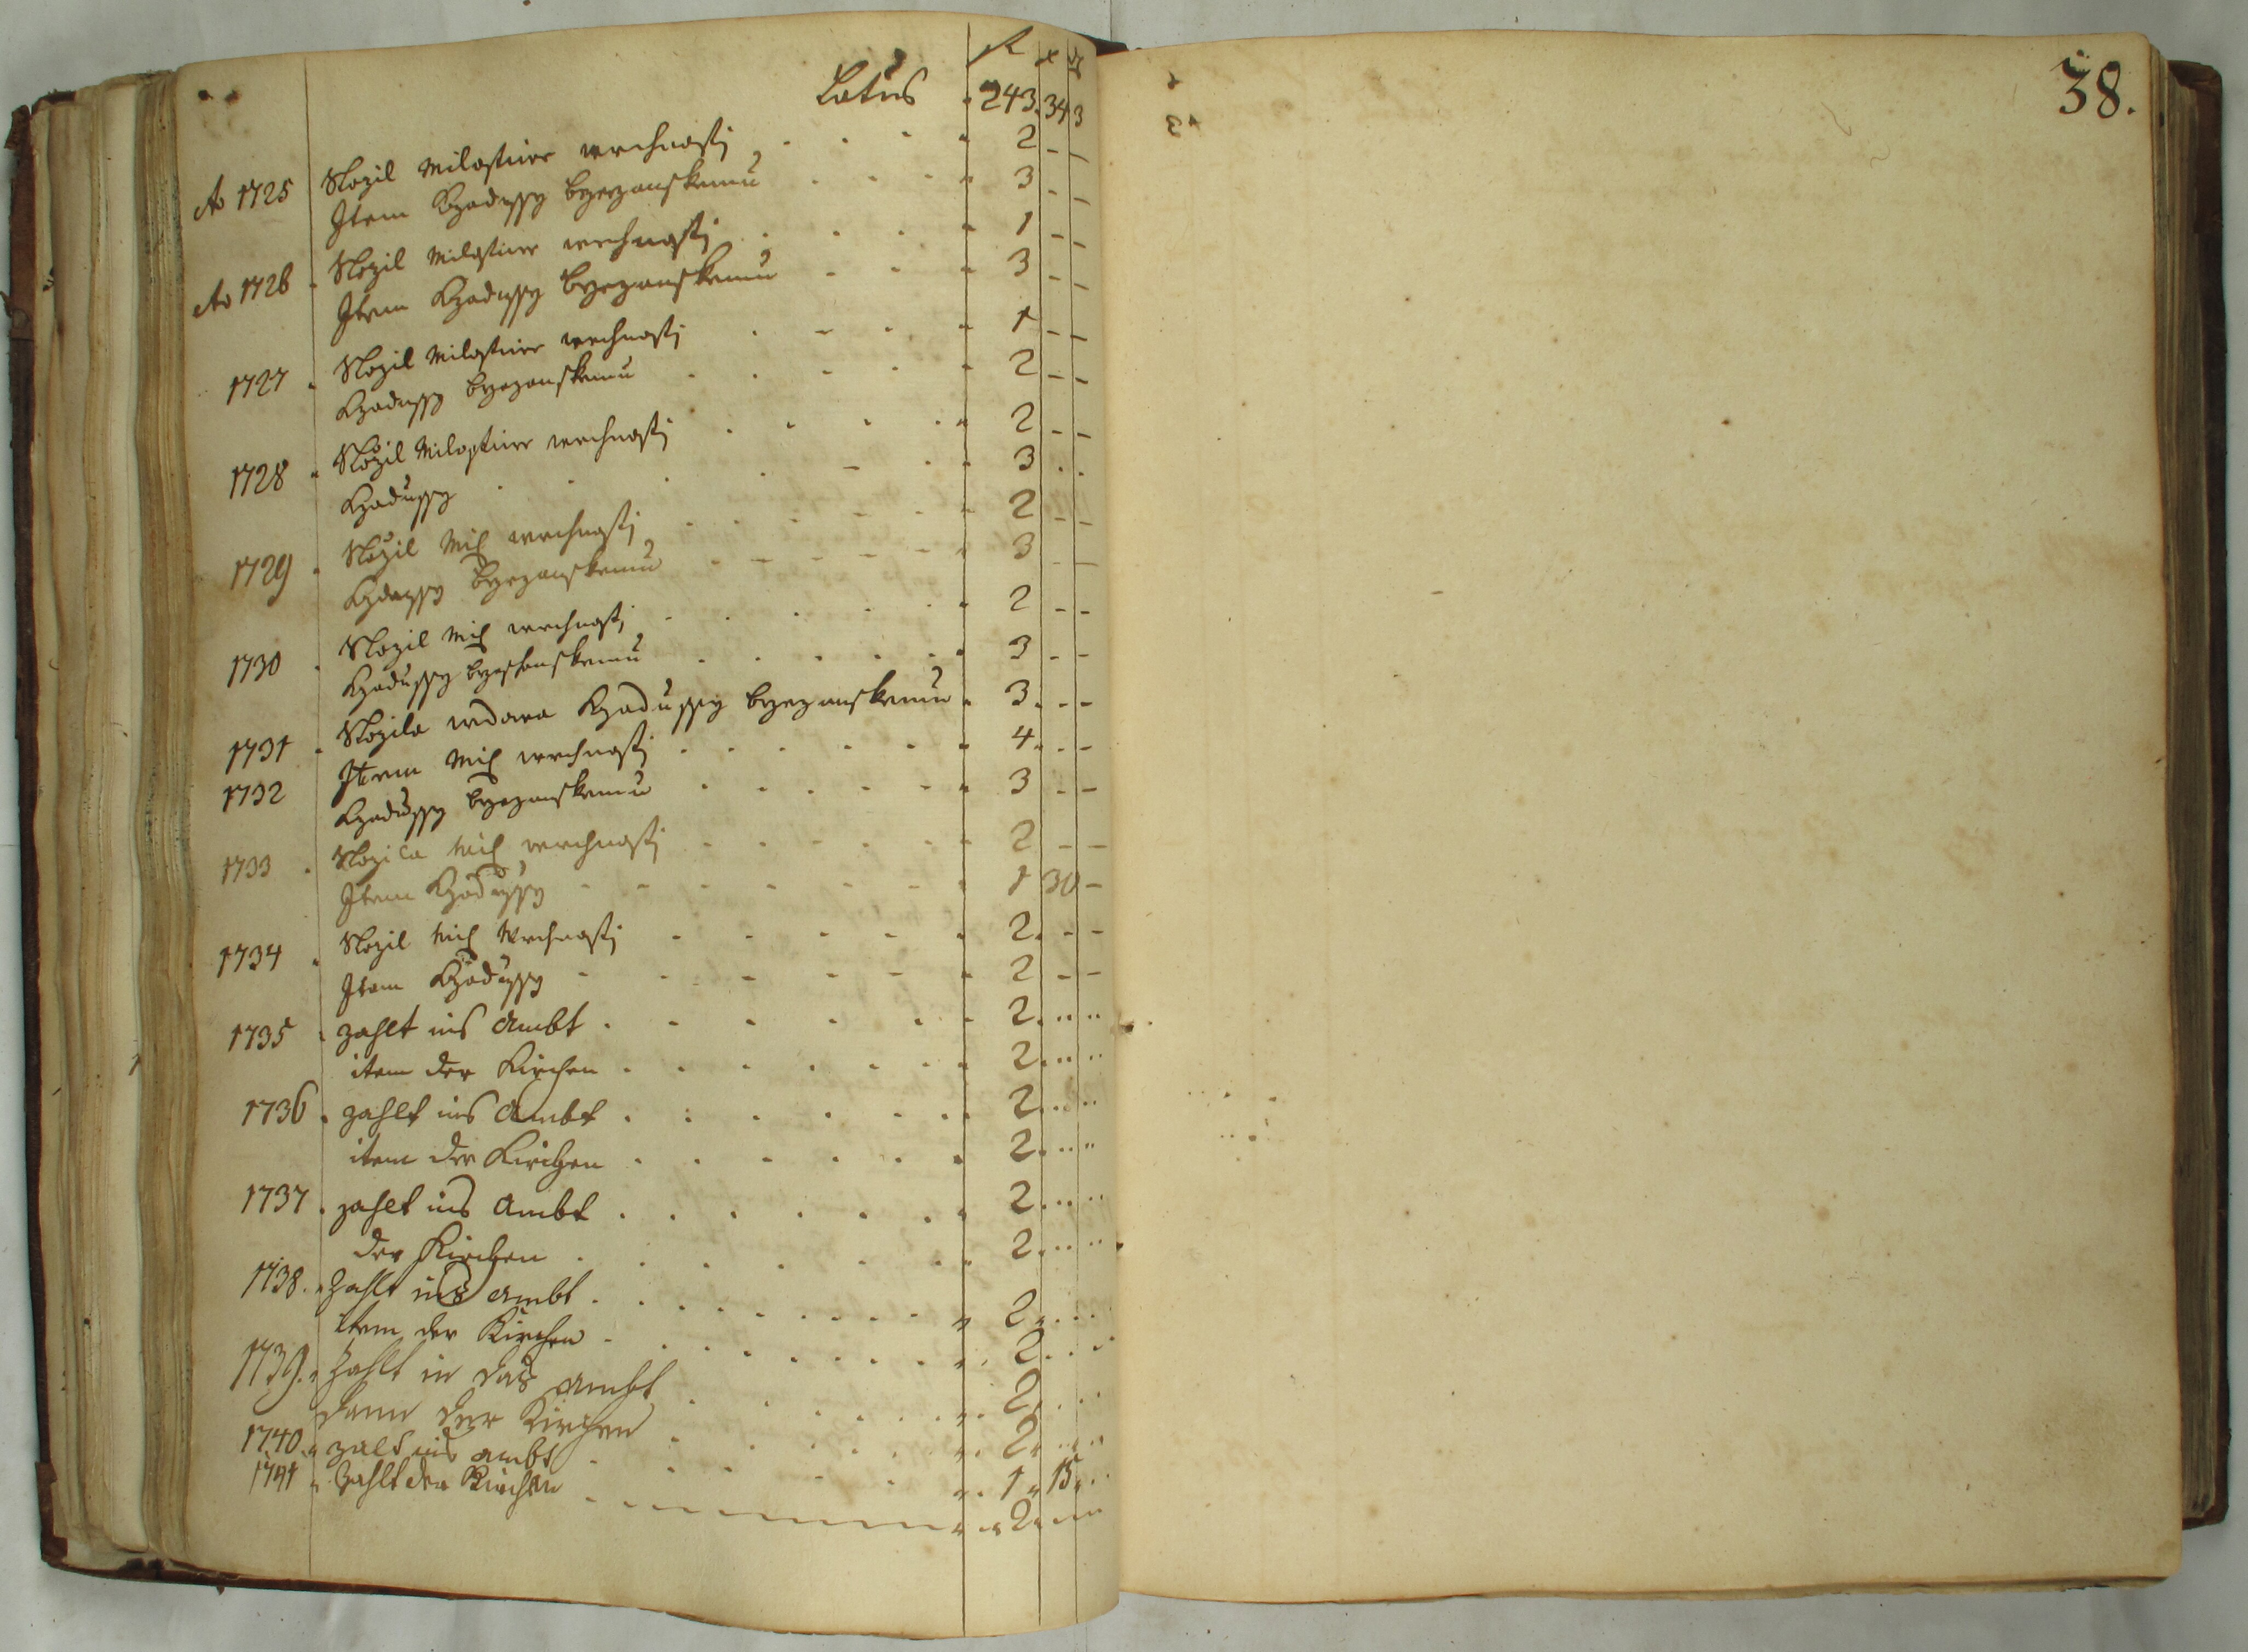 R x ₰
Latus 243. 34 3
Ao 1725 Složil Milostiwe wrchnosti 2 – –
Item Kzadussy brzezanskemu 3 – –
Ao 1726 Složil Milostiwe wrchnosti 1 – –
Item Kzadussy brzezanskemu 3 – –
1727 Složil Milostiwe wrchnosti 1 – –
Kzadussy brzezanskemu 2 – –
1728 Složil Milostiwe wrchnosti 2 – –
Kzadussy 3 . .
1729 Složil Mil wrchnosti 2 – –
Kzdussy brzezanskemu 3 – –
1730 Složil Mil wrchnosti 2 – –
Kzadussy brzezanskemu 3 – –
1731 Složila wdowa Kzadussy brzezanskemu 3 – –
1732 Item Mil wrchnosti 4 – –
Kzadussy brzezanskemu 3 – –
1733 Složila Mil wrchnosti 2 – –
Item Kzadussy 1 30 –
1734 Složil Mil Wrchnosti 2 – –
Item Kzadussy 2 – –
1735 zahlt ins Ambt 2
item der Kirchen 2
1736 zahlt ins Ambt 2
item der Kirchen 2
1737 zahlt ins Ambt 2
der Kirchen 2
1738 Zahlt ins Ambt 2
item der Kirchen 2
1739 Zahlt in das ambt 2
dann der Kirchen 2
1740 zalt ins ambt 1 15
1741 Zahlt der Kirchen 2
38.